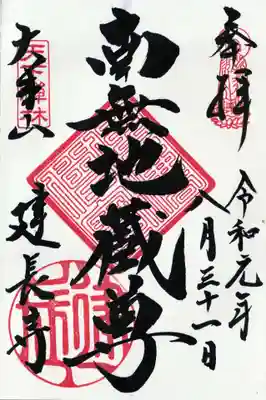 奉拝
令和元年
八月三十一日
南無地蔵尊
大本山
建長寺